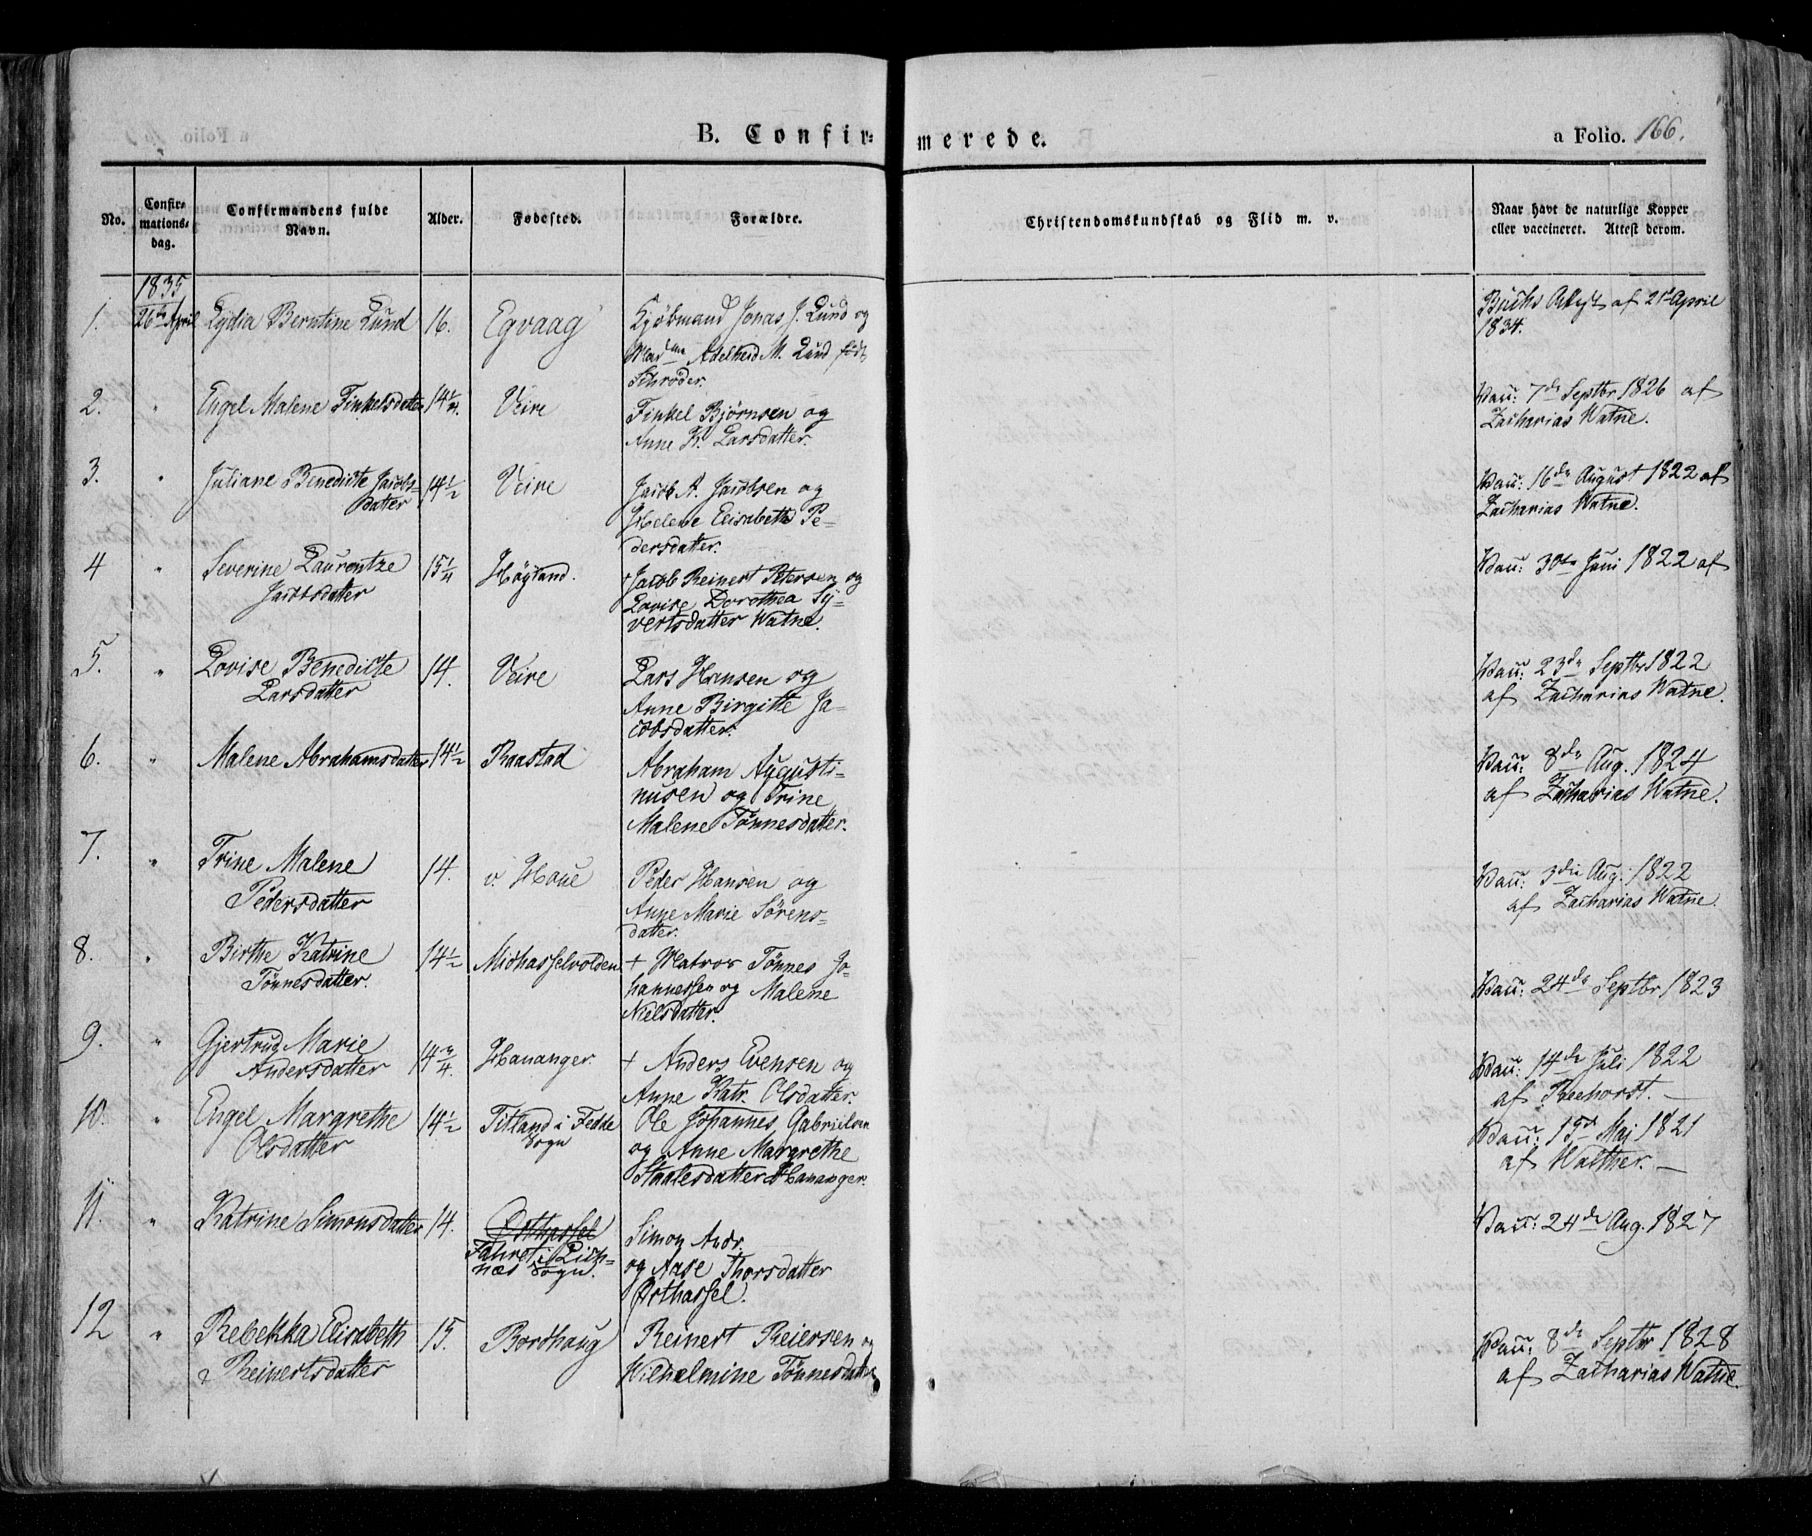 B. Confir-merede.
a Folio. 166.
No.
Confir-
mations-
dag.
Confirmandens fulde
Navn.
Alder.
Fødested.
Forældre.
Christendomskundskab og Flid m. v.
Naar havt de naturlige Kopper
eller vaccineret. Attest derom.
1835
1. 26de April Lydia Berntine Lund 16. Egvaag
Kjøbmand Jonas J. Lund og
Madme Adelheid M. Lund født
Schrøder.
Buchs Attest af 21 April
1834.
2. " Engel Malene Finkelsdatter 14¼ Veire
Finkel Bjørnsen og
Anne K. Larsdatter.
Vac: 7de Septbr 1826 af
Zacharias Watne.
3. " Juliane Benedicte Jacobs-
datter 14½ Veire
Jacob A. Jacobsen og
Helene Elisabeth Pe-
dersdatter.
Vac: 16de August 1822 af
Zacharias Watne.
4 " Severine Laurentze
Jacobsdatter 15¼ Høyland.
+ Jacob Reinert Petersen og
Lovise Dorothea Sy-
vertsdatter Watne.
Vac: 30te Juni 1822 af
5. " Lovise Benedicte
Larsdatter 14. Veire
Lars Hansen og
Anne Birgitte Ja-
cobsdatter.
Vac: 23de Septbr 1822
af Zacharias Watne.
6. " Malene Abrahamsdatter 14½ Raastad
Abraham Augusti-
nusen og Trine
Malene Tønnesdatter.
Vac: 8de Aug. 1824
af Zacharias Watne.
7. " Trine Malene
Pedersdatter 14. v. Houe
Peder Hansen og
Anne Marie Sørens-
datter.
Vac: 3die Aug. 1822
af Zacharias Watne.
8. " Birthe Katrine
Tønnesdatter. 14½ Midhasselvolden
+ Matros Tønnes Jo-
hannessen og Malene
Nielsdatter.
Vac: 24de Septbr 1823
9. " Gjertrug Marie
Andersdatter 14¾. Hananger.
+ Anders Evensen og
Anne Katr. Olsdatter.
Vac: 14de Juli 1822
af Reehorst. —
10. " Engel Margrethe
Olsdatter 14½ Titland i Fedde
Sogn
Ole Johannes Gabrielsen
og Anne Margrethe
Staalesdatter Hananger.
Vac: 15de Maj 1821
af Walther. —
11. " Katrine Simonsdatter 14. Østhassel
i
Sogn.
Simon Andr.
og Aase Thorsdatter
Østhassel.
Vac: 24de Aug. 1827
12 " Rebekka Elisabeth
Reinertsdatter 15. Bordhaug
Reinert Reiersen og
Wilhelmine Tønnesdatter
Vac: 8de Septbr 1828
af Zacharias Watne.